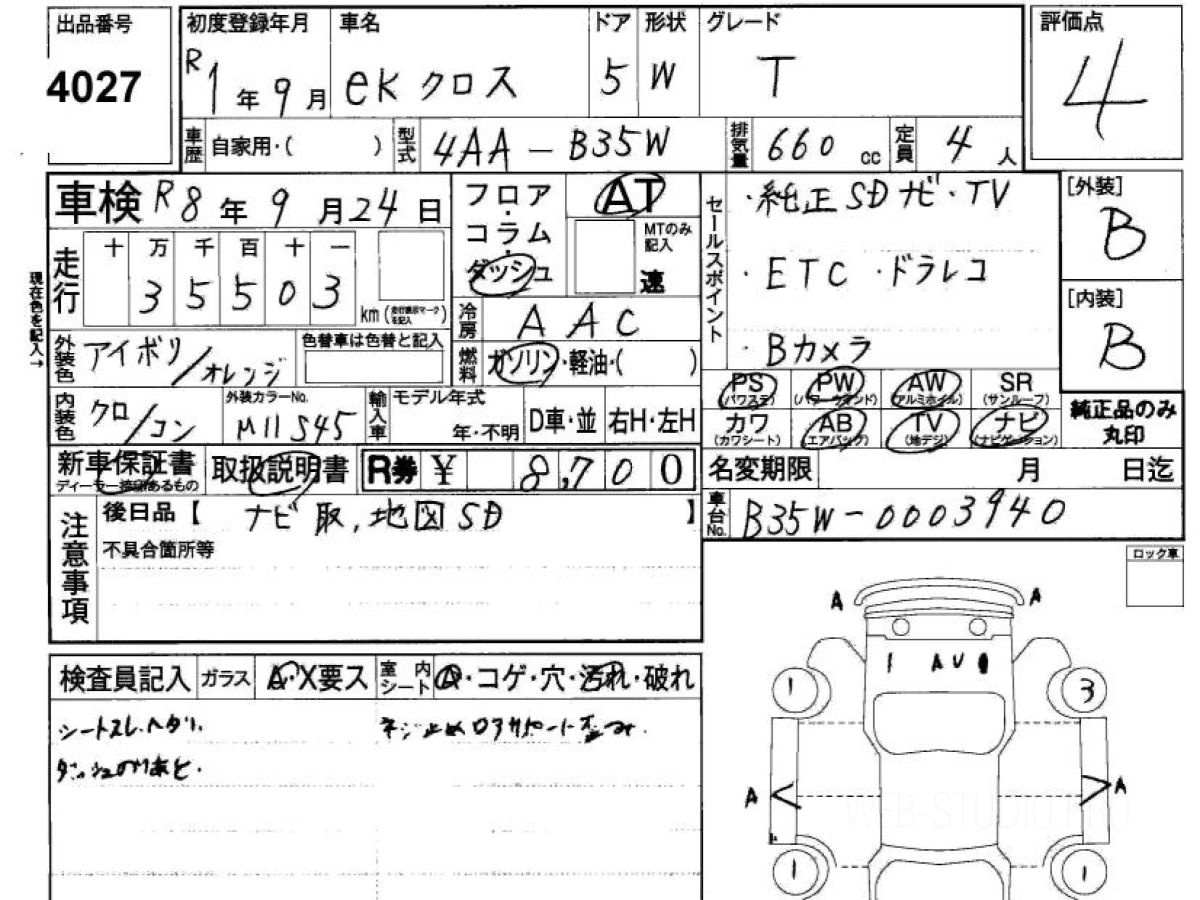 出品番号 初度登録年月 車名 ドア 形状 グレード 評価点
4027 R1年9月 eKクロス 5 W T 4
車歴 自家用・( ) 型式 4AA-B35W 排気量 660cc 定員 4人
車検 R8年9月24日 フロア・コラム・ダッシュ AT
MTのみ記入 速
現在色を記入→
走行 十 万 千 百 十 一
3 5 5 0 3 km (走行表示マークを記入)
冷房 AAC
外装色 アイボリ/オレンジ 色替車は色替と記入
燃料 ガソリン・軽油・( )
内装色 クロ/コン 外装カラーNo. M11 S45 輸入車 モデル年式 年・不明 D車・並 右H・左H
セールスポイント
・純正SDナビ・TV
・ETC ・ドラレコ
・Bカメラ
[外装] B
[内装] B
PS (パワステ) PW (パワーウインド) AW (アルミホイル) SR (サンルーフ)
カワ (カワシート) AB (エアバック) TV (地デジ) ナビ (ナビゲーション)
純正品のみ丸印
新車保証書 取扱説明書 R券 ¥ 8,700
名変期限 月 日迄
車台No. B35W-0003940
注意事項
後日品【 ナビ取,地図SD 】
不具合箇所等
ロック車
検査員記入 ガラス A・X要ス 室内シート A・コゲ・穴・汚れ・破れ
シートスレ.ヘタリ.
ネジ止め ロアサポート歪み.
ダッシュのりあと.
A A
1 A U
1 3
A A
1 1
WEB-STUDIO.PRO